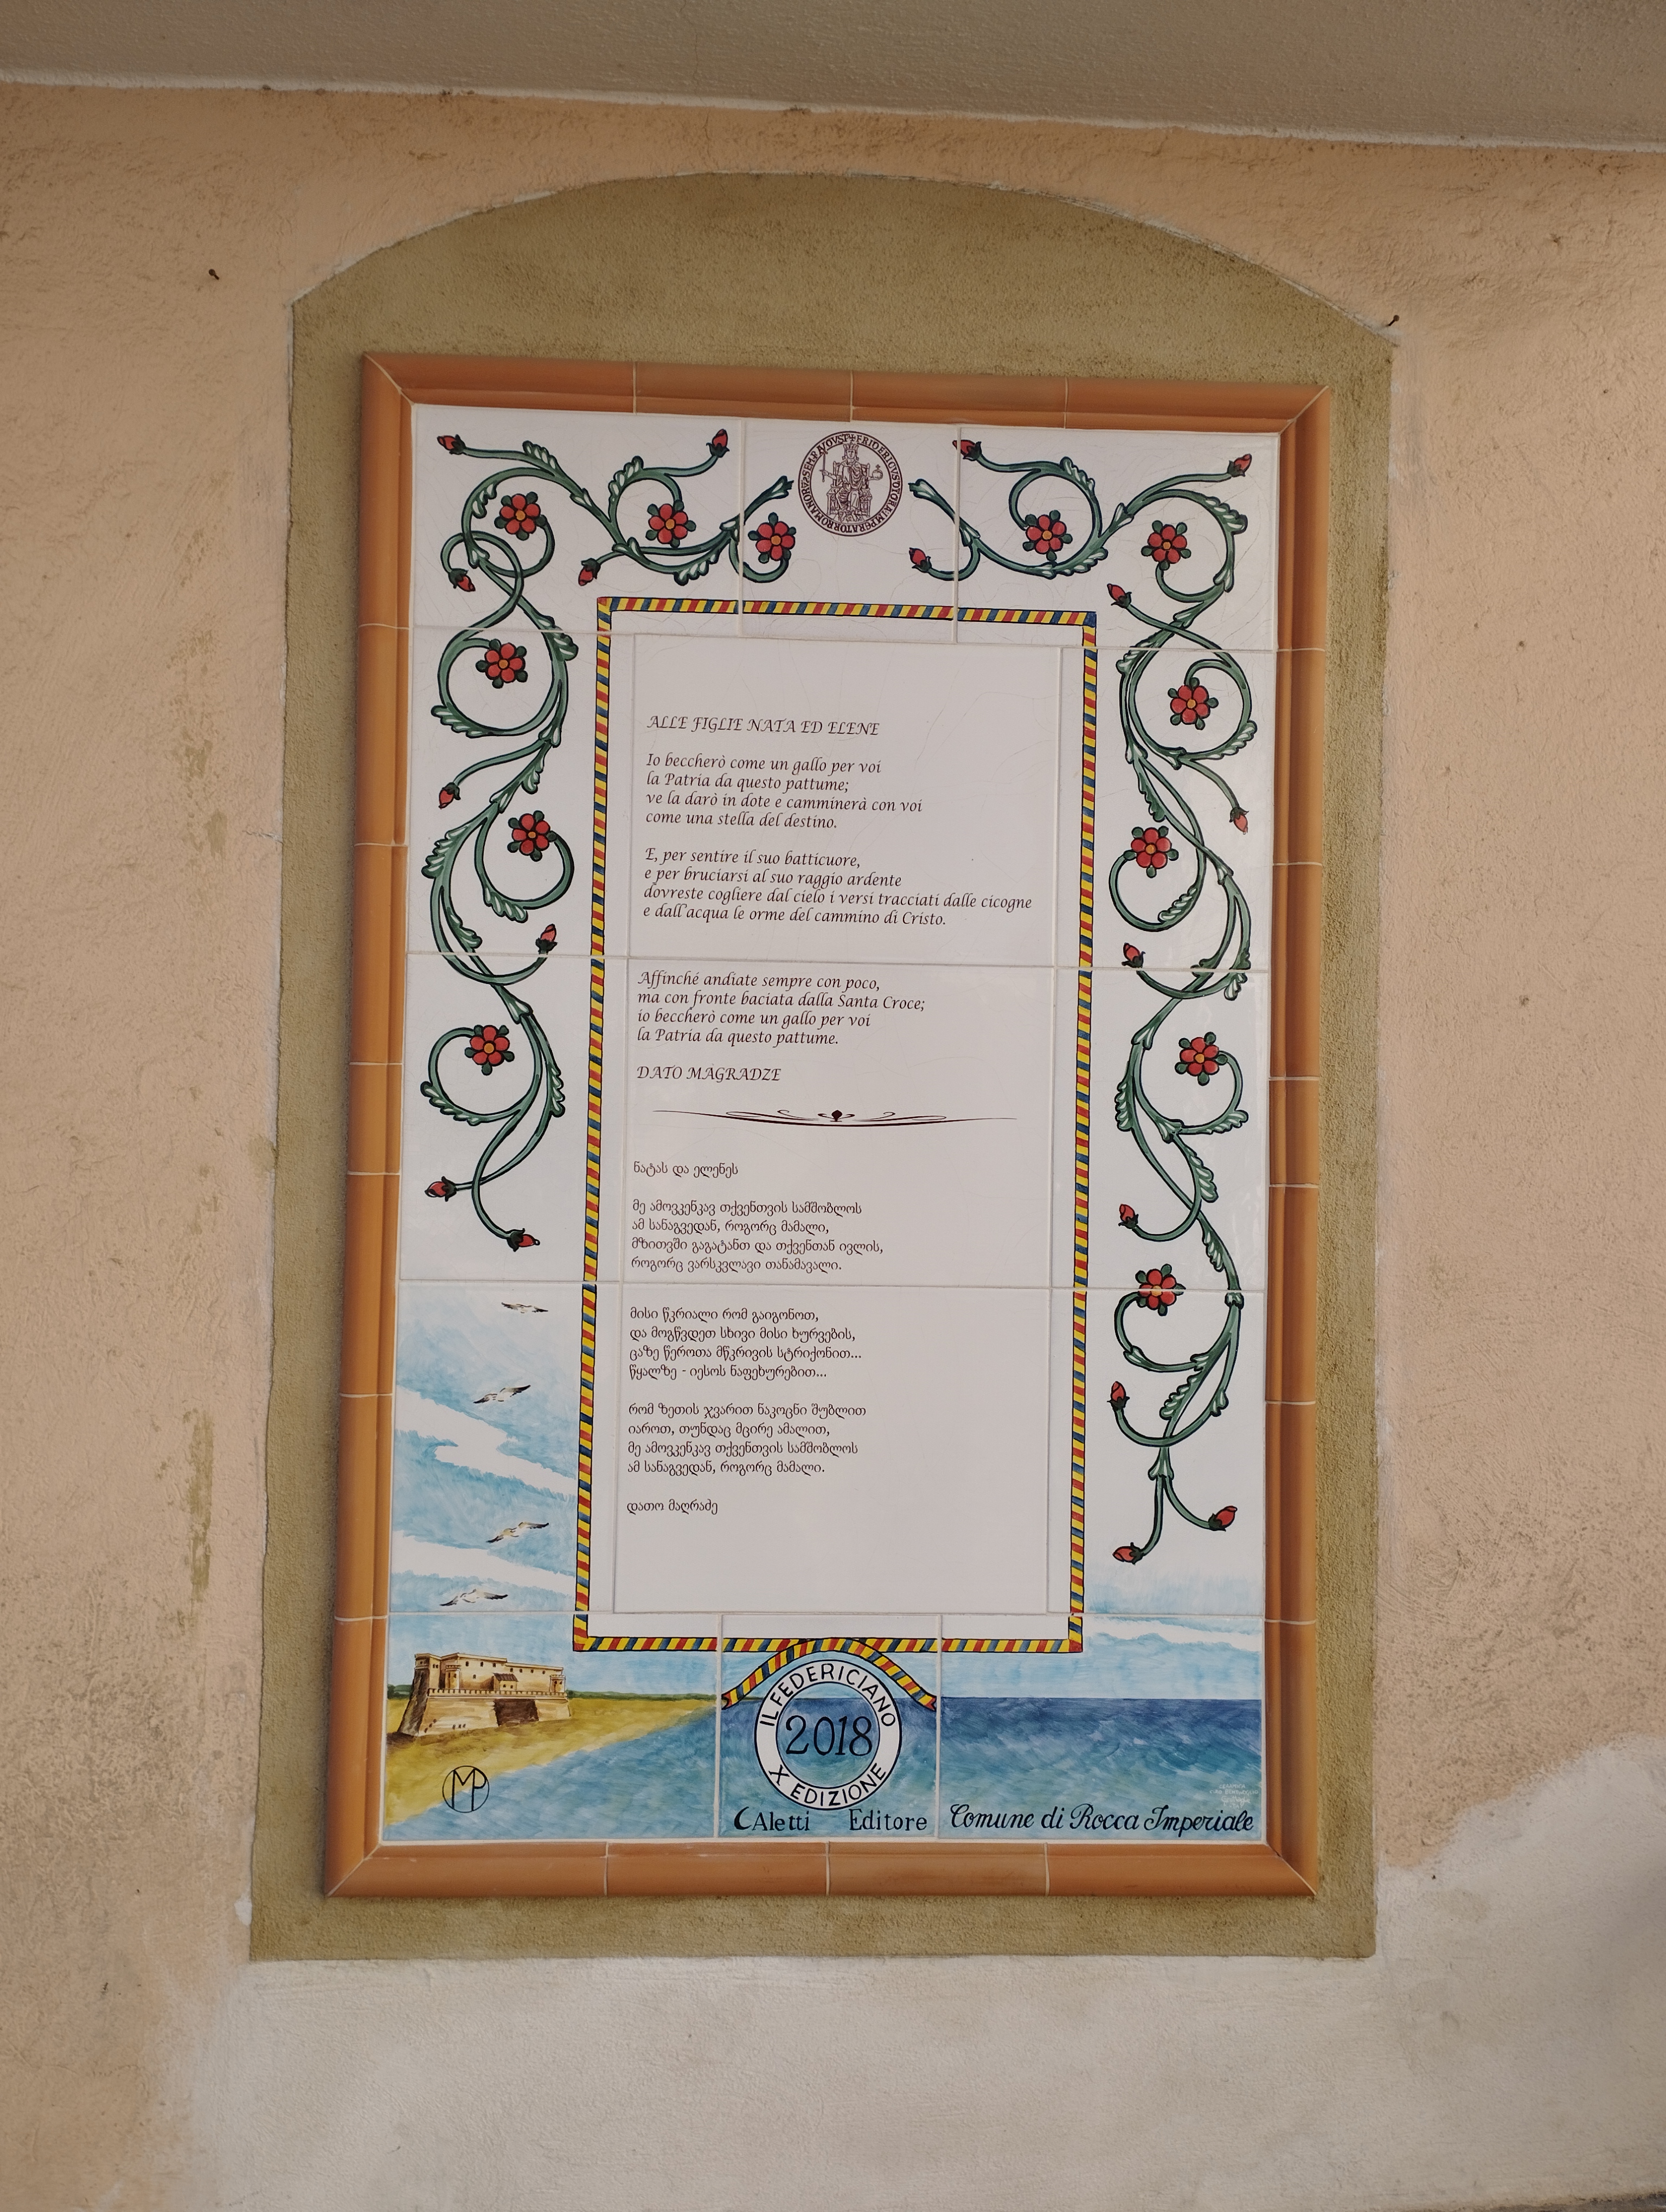 SEMP AVGVST FRIDERICVS DI GRA IMPERATOR ROMANORV
ALLE FIGLIE NATA ED ELENE
Io beccherò come un gallo per voi
la Patria da questo pattume;
ve la darò in dote e camminerà con voi
come una stella del destino.
E, per sentire il suo batticuore,
e per bruciarsi al suo raggio ardente
dovreste cogliere dal cielo i versi tracciati dalle cicogne
e dall'acqua le orme del cammino di Cristo.
Affinché andiate sempre con poco,
ma con fronte baciata dalla Santa Croce;
io beccherò come un gallo per voi
la Patria da questo pattume.
DATO MAGRADZE
ნატას და ელენეს
მე ამოვკენკავ თქვენთვის სამშობლოს
ამ სანაგვედან, როგორც მამალი,
მზითვში გაგატანთ და თქვენთან ივლის,
როგორც ვარსკვლავი თანამავალი.
მისი წკრიალი რომ გაიგონოთ,
და მოგწვდეთ სხივი მისი ხურვების,
ცაზე წეროთა მწკრივის სტრიქონით...
წყალზე - იესოს ნაფეხურებით...
რომ ზეთის ჯვარით ნაკოცნი შუბლით
იაროთ, თუნდაც მცირე ამალით,
მე ამოვკენკავ თქვენთვის სამშობლოს
ამ სანაგვედან, როგორც მამალი.
დათო მაღრაძე
IL FEDERICIANO
2018
X EDIZIONE
MP
Aletti Editore
Comune di Rocca Imperiale